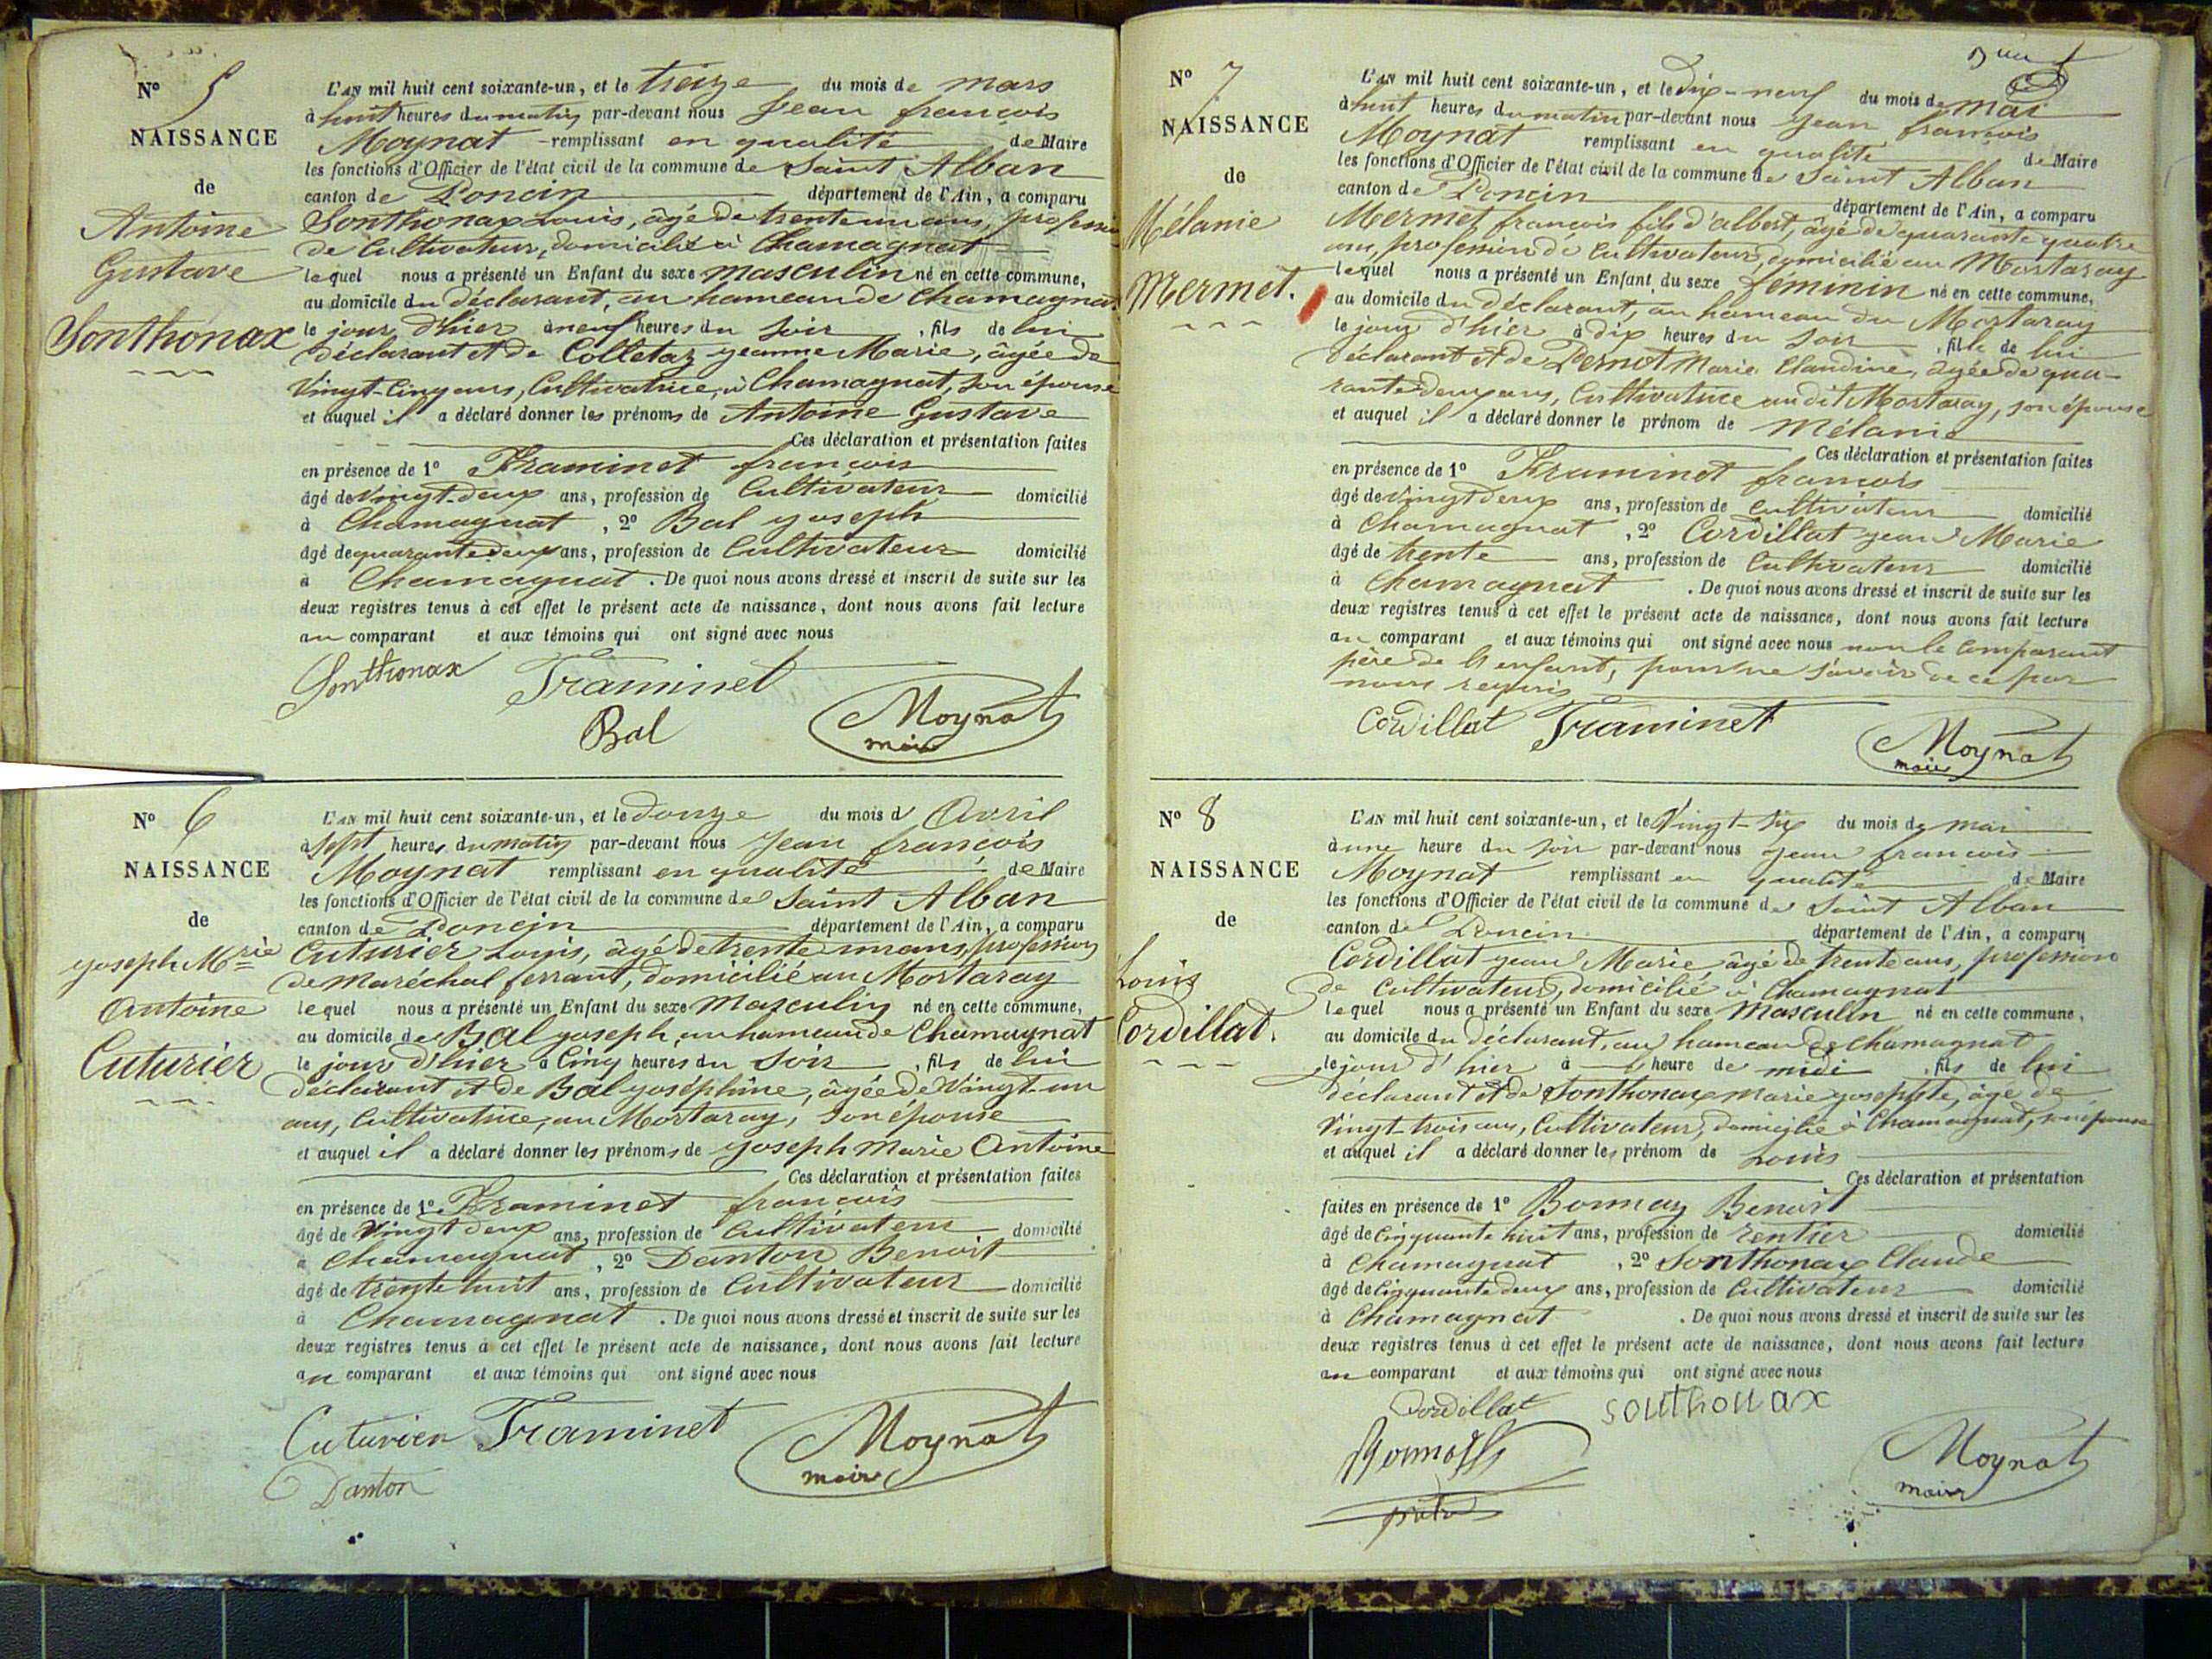 N° 5
NAISSANCE
de
Antoine
Gustave
Sonthonax
L'AN mil huit cent soixante-un, et le treize du mois de mars
à huit heures du matin par-devant nous Jean françois
Moynat remplissant en qualité de Maire
les fonctions d'Officier de l'état civil de la commune de Saint Alban
canton de Poncin département de l'Ain, a comparu
Sonthonax Louis, âgé de trente un ans, profession
de Cultivateur, domicilié à Chamagnat
lequel nous a présenté un Enfant du sexe masculin né en cette commune,
au domicile du déclarant, au hameau de Chamagnat
le jour d'hier à neuf heures du soir, fils de lui
déclarant et de Colletaz Jeanne Marie, âgée de
Vingt-Cinq ans, Cultivatrice, à Chamagnat, son épouse
et auquel il a déclaré donner les prénoms de Antoine Gustave
Ces déclaration et présentation faites
en présence de 1° Traminet françois
âgé de Vingt-deux ans, profession de Cultivateur domicilié
à Chamagnat, 2° Bal Joseph
âgé de quarante deux ans, profession de Cultivateur domicilié
à Chamagnat. De quoi nous avons dressé et inscrit de suite sur les
deux registres tenus à cet effet le présent acte de naissance, dont nous avons fait lecture
au comparant et aux témoins qui ont signé avec nous
Sonthonax Traminet
Bal Moynat
maire
N° 6
NAISSANCE
de
Joseph Mrie
Antoine
Cuturier
L'AN mil huit cent soixante-un, et le douze du mois d'Avril
à sept heures du matin par-devant nous Jean françois
Moynat remplissant en qualité de Maire
les fonctions d'Officier de l'état civil de la commune de Saint Alban
canton de Poncin département de l'Ain, a comparu
Cuturier Louis, âgé de trente un ans, profession
de Maréchal ferrant, domicilié au Mortaray
lequel nous a présenté un Enfant du sexe Masculin né en cette commune,
au domicile de Bal Joseph, au hameau de Chamagnat
le jour d'hier à Cinq heures du Soir, fils de lui
déclarant et de Bal Joséphine, âgée de Vingt-un
ans, Cultivatrice, au Mortaray, Son épouse
et auquel il a déclaré donner les prénoms de Joseph Marie Antoine
Ces déclaration et présentation faites
en présence de 1° Traminet françois
âgé de Vingt deux ans, profession de Cultivateur domicilié
à Chamagnat, 2° Danton Benoit
âgé de trente huit ans, profession de Cultivateur domicilié
à Chamagnat. De quoi nous avons dressé et inscrit de suite sur les
deux registres tenus à cet effet le présent acte de naissance, dont nous avons fait lecture
au comparant et aux témoins qui ont signé avec nous
Cuturier Traminet Moynat
Danton maire
N° 7
NAISSANCE
de
Mélanie
Mermet.
L'AN mil huit cent soixante-un, et le dix-neuf du mois de mai
à huit heures du matin par-devant nous Jean françois
Moynat remplissant en qualité de Maire
les fonctions d'Officier de l'état civil de la commune de Saint Alban
canton de Poncin département de l'Ain, a comparu
Mermet françois fils d'albert, âgé de quarante quatre
ans, profession de Cultivateur, domicilié au Mortaray
lequel nous a présenté un Enfant du sexe féminin né en cette commune,
au domicile du déclarant, au hameau du Mortaray
le jour d'hier à dix heures du soir, fille de lui
déclarant et de Pernot Marie Claudine, âgée de qua-
rante deux ans, Cultivatrice au dit Mortaray, son épouse
et auquel il a déclaré donner le prénom de Mélanie
Ces déclaration et présentation faites
en présence de 1° Traminet francois
âgé de vingt deux ans, profession de Cultivateur domicilié
à Chamagnat, 2° Cordillat Jean Marie
âgé de trente ans, profession de Cultivateur domicilié
à Chamagnat. De quoi nous avons dressé et inscrit de suite sur les
deux registres tenus à cet effet le présent acte de naissance, dont nous avons fait lecture
au comparant et aux témoins qui ont signé avec nous non le Comparant
père de l'enfant, pour ne savoir de ce par
nous requis
Cordillat Traminet Moynat
maire
N° 8
NAISSANCE
de
Louis
Cordillat.
L'AN mil huit cent soixante-un, et le Vingt-Six du mois de mai
à une heure du soir par-devant nous Jean françois
Moynat remplissant en qualité de Maire
les fonctions d'Officier de l'état civil de la commune de Saint Alban
canton de Poncin département de l'Ain, a comparu
Cordillat Jean Marie âgé de trente ans, profession
de Cultivateur, domicilié à Chamagnat
lequel nous a présenté un Enfant du sexe Masculin né en cette commune,
au domicile du déclarant, au hameau de Chamagnat
le jour d'hier à l'heure de midi, fils de lui
déclarant et de Sonthonax Marie Josephte, âgé de
Vingt-trois ans, Cultivateur, domicilié à Chamagnat, son épouse
et auquel il a déclaré donner les prénom de Louis
Ces déclaration et présentation
faites en présence de 1° Bonnaz Benoit
âgé de Cinquante huit ans, profession de rentier domicilié
à Chamagnat, 2° Sonthonax Claude
âgé de Cinquante deux ans, profession de Cultivateur domicilié
à Chamagnat. De quoi nous avons dressé et inscrit de suite sur les
deux registres tenus à cet effet le présent acte de naissance, dont nous avons fait lecture
au comparant et aux témoins qui ont signé avec nous
Cordillat Sonthonax
Moynat
maire